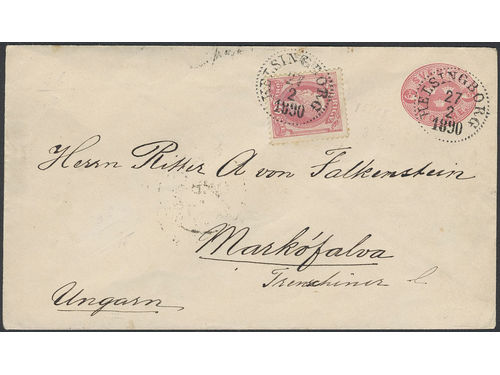 HELSINGBORG
27
2
1890
HELSINGBORG
27
2
1890
Herrn Ritter A von Falkenstein
Markófalva
Trenchiner
Ungarn